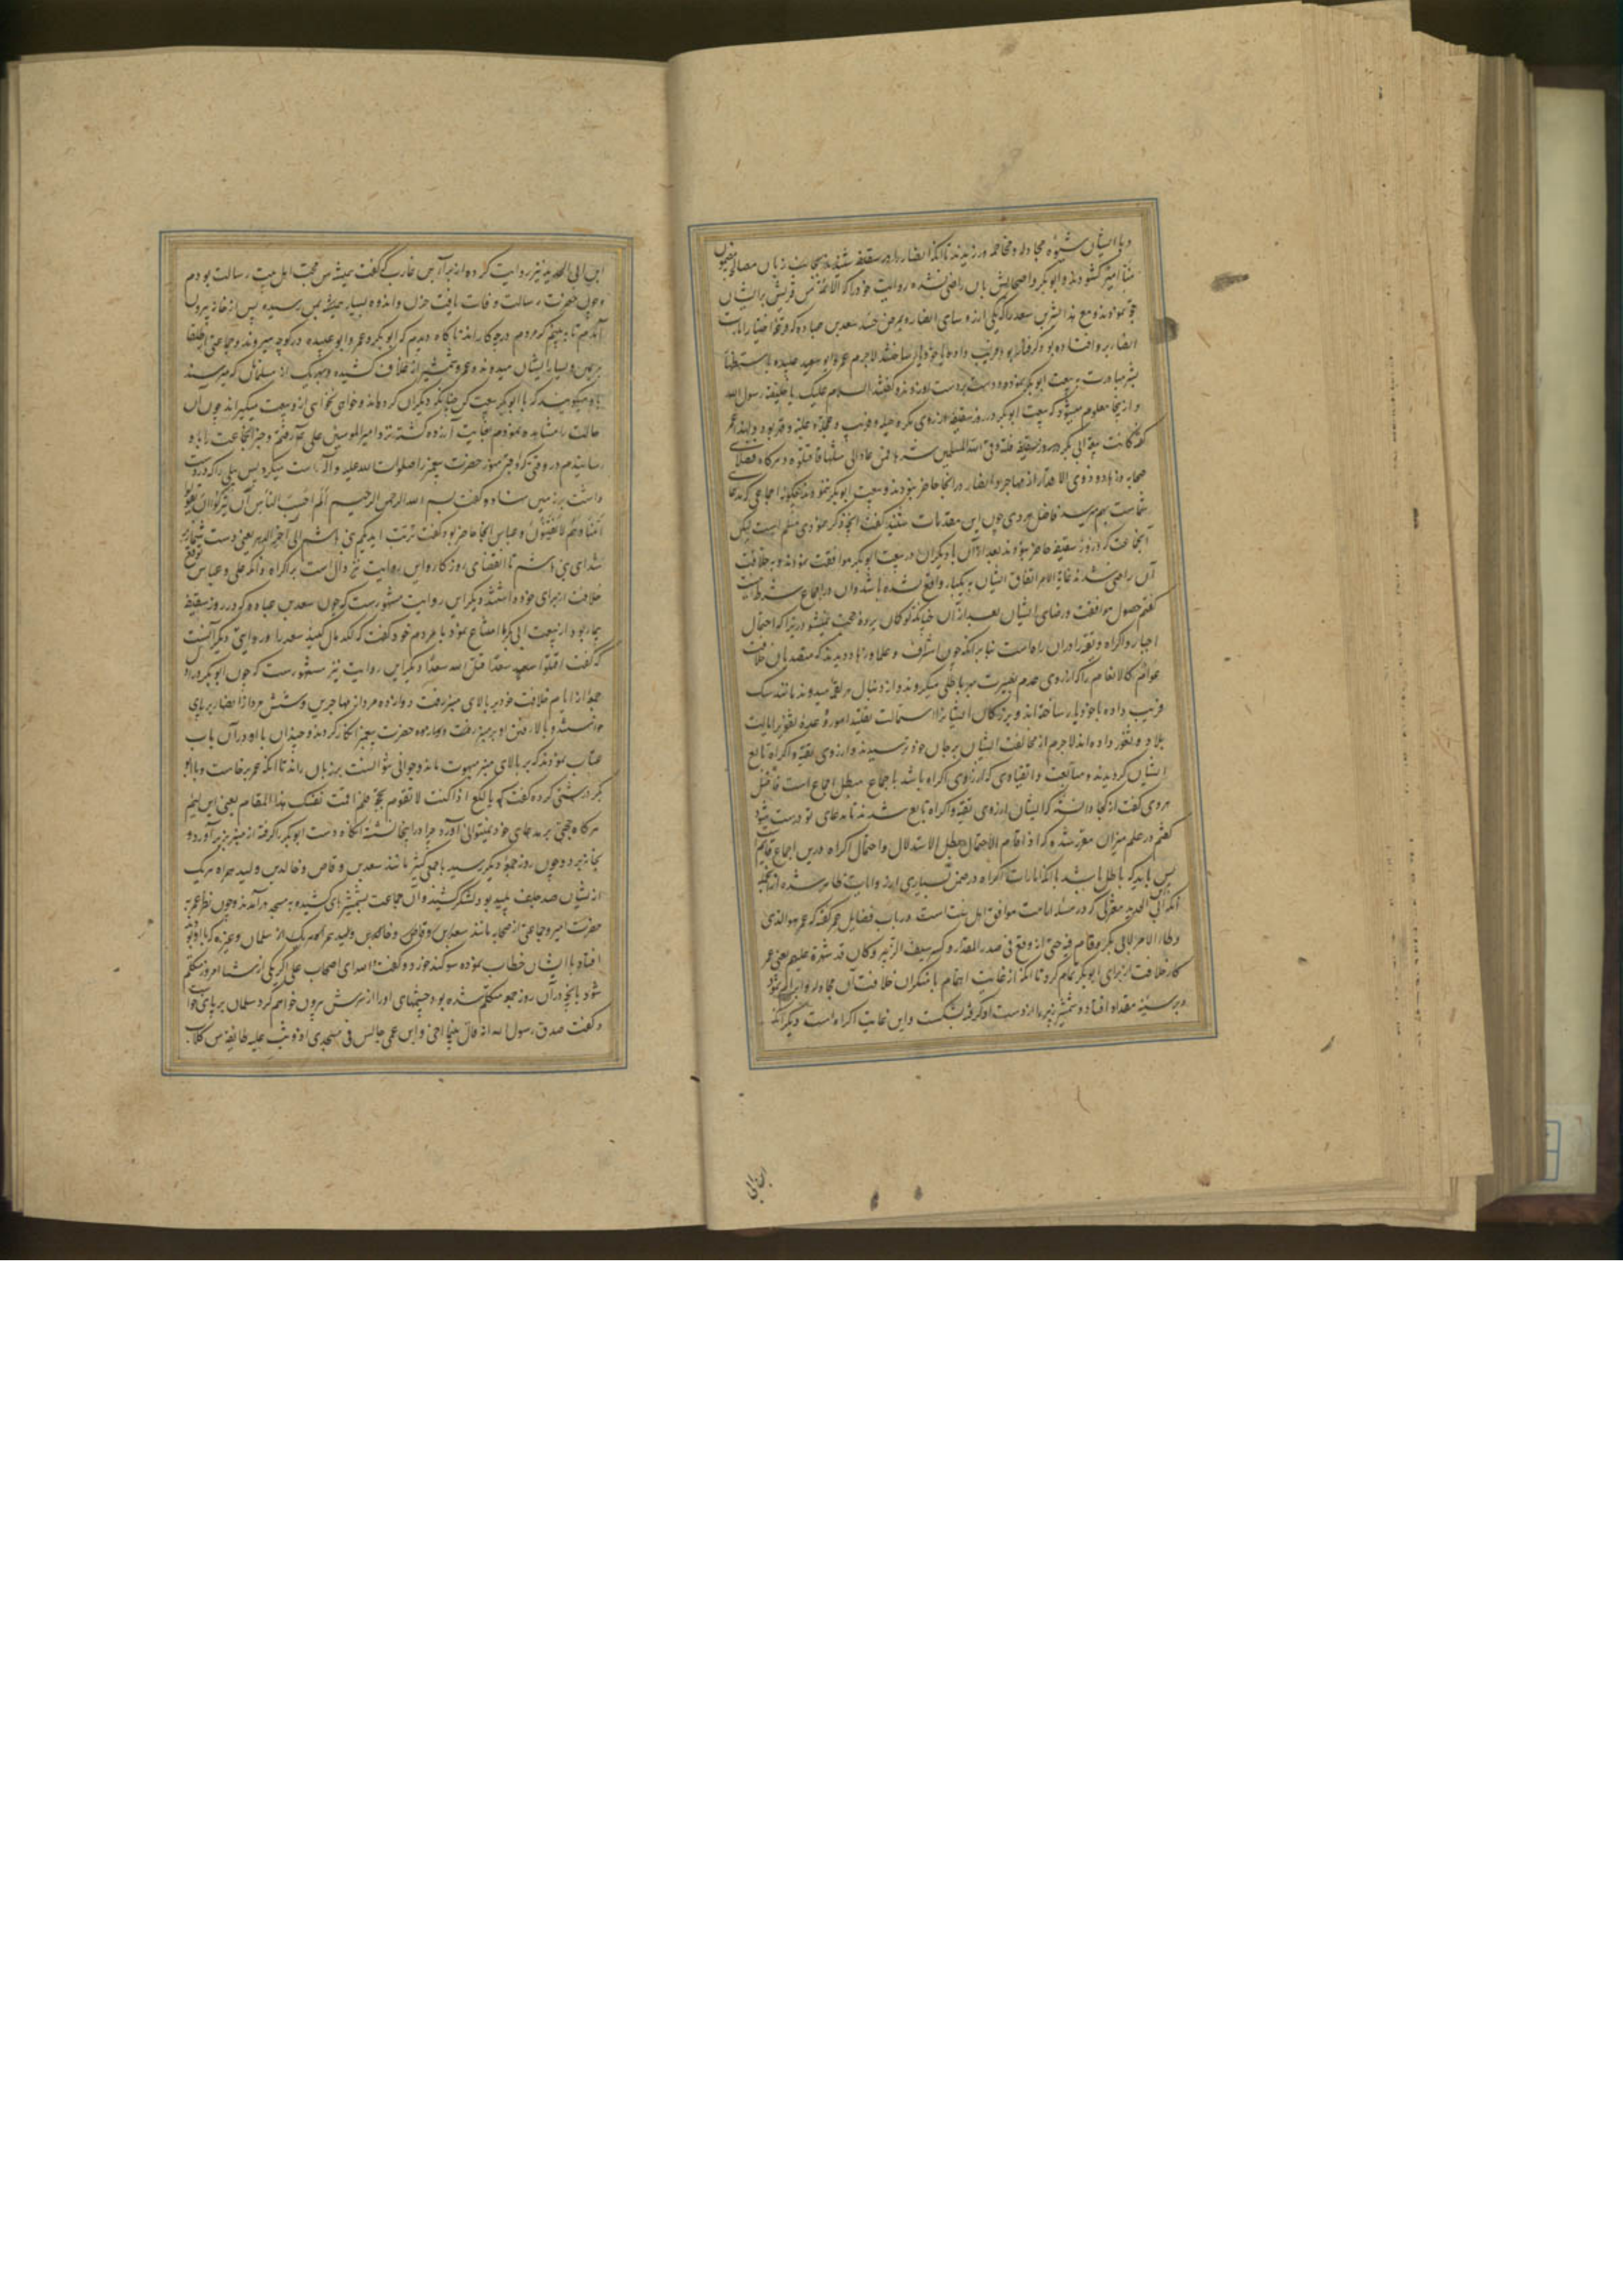 و با ایشان شیوه مجادله و مخاصمه ورزیدند تا آنکه انصار را در سقیفه بجانب زبان مصالحه
منا امیر کشودند و ابوبکر و اصحابش بان راضی نشده روایت خود را که الائمة من قریش بر ایشان
حجة نمودند و مع هذا بشیر بن سعد را که یکی از رؤسای انصار بود حسد سعد بن عباده که
انصار برو افتاده بود فریب داده با خود یار ساختند لاجرم عمر و ابو عبیده
بشیر مبادرت به بیعت ابوبکر نموده دست بدست او زدند و گفتند السلام علیک یا خلیفة رسول الله
و از اینجا معلوم میشود که بیعت ابوبکر در روز سقیفه از روی مکر و حیله و فریب و عجله و غلبه و قهر بود و لهذا عمر
گفته کانت بیعة ابی بکر فلتة وقی الله المسلمین شرها فمن عاد الی مثلها فاقتلوه و هرگاه فضلای
صحابه و زهاد و ذوی الاقتدار از مهاجر و انصار در آنجا حاضر نبودند و بیعت ابوبکر ننمودند چگونه اجماعی که مدعا
شماست بهم میرسد فاضل هروی چون این مقدمات شنید گفت آنچه ذکر نمودی مسلم است لیکن
آنجماعت که در روز سقیفه حاضر نبودند بعد از آن با دیگران در بیعت ابوبکر موافقت نمودند و به خلافت
آن راضی شدند غایة الامر اتفاق ایشان به یکبار واقع نشده باشد و آن در اجماع شرط نیست
گفتم حصول موافقت و رضای ایشان بعد از آن چنانکه گمان برده حجت نمیشود زیرا که احتمال
اجبار و اکراه و تقیه را در آن راه است بنا بر آنکه چون اشراف و علما و زهاد دیدند که متصدیان خلافت
عوام کالانعام را که از روی عدم بصیرت میل بباطل میکردند و از دنبال هر نعیق میدوند مانند سک
فریب داده با خود یار ساخته اند و بزرگان ایشان را استمالت بتقلید امور و عده تفویض ایالت
بلاد و ثغور داده اند لاجرم از مخالفت ایشان بر جان خود ترسیدند و از روی تقیه و اکراه تابع
ایشان گردیدند و متابعت و انقیادی که از روی اکراه باشد باجماع مبطل اجماع است فاضل
هروی گفت از کجا دانسته که ایشان از روی تقیه و اکراه تابع شدند تا مدعای تو درست شود
گفتم در علم میزان مقرر شده که اذا قام الاحتمال بطل الاستدلال و احتمال اکراه درین اجماع قایم است
پس باید که باطل باشد با آنکه امارات اکراه در ضمن بسیاری از روایات ظاهر شده از آنجمله
آنکه ابن ابی الحدید معتزلی که در مسئله امامت موافق اهل سنت است در باب فضایل عمر گفته که عمر هو الذی
وطأ الامر لابی بکر و قام فیه حتی انه وقع فی صدر المقداد و کسر سیف الزبیر و کان قد شهره علیهم یعنی عمر
کار خلافت از برای ابوبکر تمام کرد تا آنکه از غایت اهتمام با منکران خلافت آن مجادله
و بر سینه مقداد افتاد و شمشیر زبیر را از دست او گرفته بشکست و این غایت اکراه است و دیگر آنکه
ابن ابی الحدید نیز روایت کرده از براء بن عازب که گفت همیشه من محب اهل بیت رسالت بودم
و چون حضرت رسالت وفات یافت حزن و اندوه بسیار بمن رسیده پس از خانه بیرون
آمدم تا به بینم که مردم درچه کارند ناگاه دیدم که ابوبکر و عمر و ابو عبیده در کوچه میروند و جماعتی
بر یمین و یسار ایشان میدوند و عمر شمشیر از غلاف کشیده و بهر یک از مسلمانان که میرسند
باو میگویند که با ابوبکر بیعت کن چنانکه دیگران کرده اند و خواهی نخواهی از و بیعت میگیرند چون آن
حالت را مشاهده نمودم بغایت آزرده گشته نزد امیر المؤمنین علی رفتم و خبر آنجماعت را باو
رسانیدم در وقتی که قبر منور حضرت پیغمبر را صلوات الله علیه و آله راست میکرد پس بیلی را که در دست
داشت بر زمین نهاد و گفت بسم الله الرحمن الرحیم الم احسب الناس ان یترکوا ان یقولوا
امنا و هم لا یفتنون و عباس آنجا حاضر بود گفت تربت ایدیکم بنی هاشم الی آخر الدهر یعنی دست شما
شد ای بنی هاشم تا انقضای روزگار و این روایت نیز دال است بر اکراه و آنکه علی و عباس توقع
خلافت از برای خود داشتند و دیگر این روایت مشهورست که چون سعد بن عباده که در روز سقیفه
بیمار بود از بیعت ابی بکر امتناع نمود با مردم خود گفت که لکد مال کنید سعد را و روایتی دیگر آنست
که گفت اقتلوا سعدا قتل الله سعدا و دیگر این روایت نیز مشهورست که چون ابوبکر در اول
جمعه از ایام خلافت خود بر بالای منبر رفت دوازده مرد از مهاجرین و شش مرد از انصار بر پای
خواستند و بالا رفتن او بر منبر حضرت پیغمبر انکار کردند و چندان با او در آن باب
عتاب نمودند که بر بالای منبر مبهوت ماند و جوابی نتوانست بر زبان راند تا آنکه عمر برخاست و با ابو
بکر درشتی کرده گفت که یا لکع اذا کنت لا تقوم بحجة فلم اقمت نفسک هذا المقام یعنی ای لئیم
هرگاه حجتی بر مدعای خود نمیتوانی آورد چرا در اینجا نشسته آنگاه دست ابوبکر را گرفته از منبر بزیر آورد و
بخانه برد و چون روز جمعه دیگر رسید با جمعی کثیر مانند سعد بن وقاص و خالد بن ولید همراه هر یک
از ایشان صد حلیف پلید بود لشکر کشیدند و آن جماعت شمشیرهای کشیده به مسجد در آمدند و چون نظر عمر به
حضرت امیر و جماعتی از صحابه مانند سلمان و غیره که با او بودند
افتاد با ایشان خطاب نموده سوگند خورد و گفت والله ای اصحاب علی اگر یکی از شما امروز متکلم
شود بآنچه در آن روز جمعه متکلم شده بود چشمهای او را از سرش بیرون خواهم کرد سلمان بر پای خواست
و گفت صدق رسول الله انه قال بینما اخی و ابن عمی جالس فی مسجدی اذ وثب علیه طایفة من کلاب